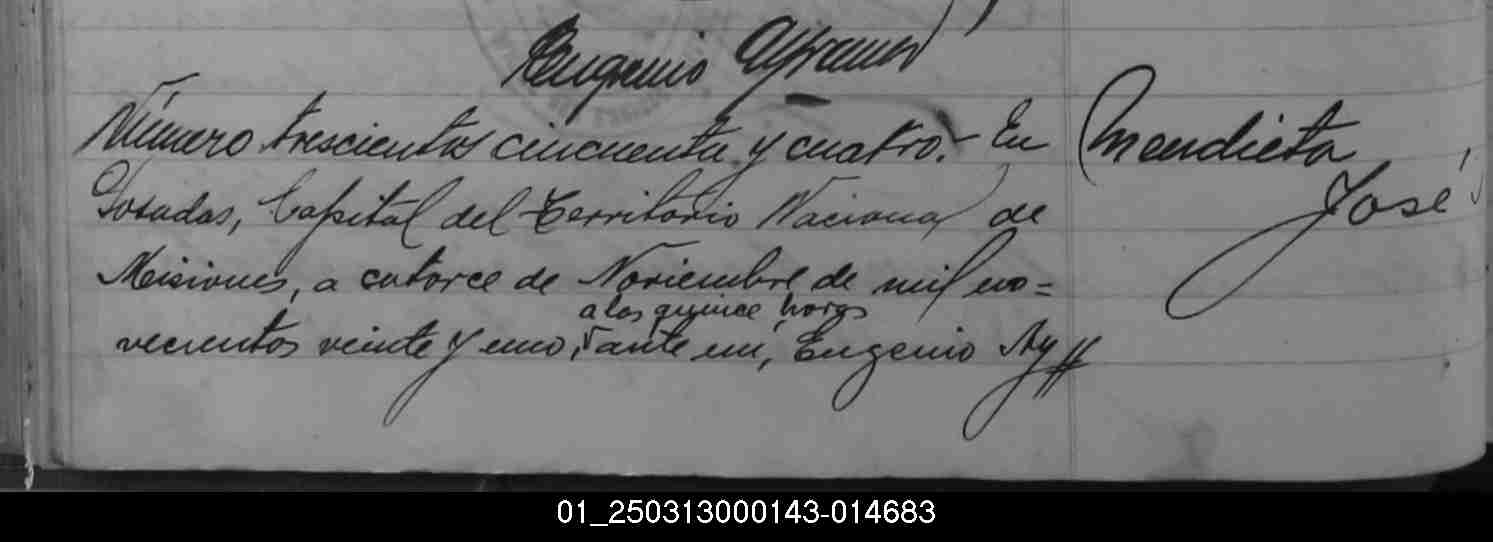 Eugenio
Número trescientos cincuenta y cuatro. - En
Posadas, Capital del Territorio Nacional de
Misiones, a catorce de Noviembre de mil no=
a las quince horas
vecientos veinte y uno, ante mi, Eugenio Ay
Mendieta
José
01_250313000143-014683